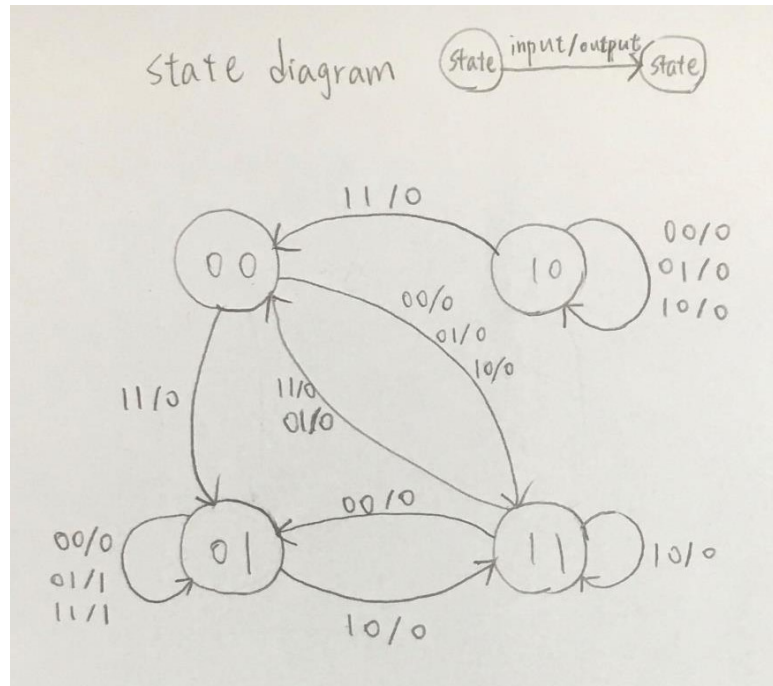 state diagram
state input/output state
11/0
00
10
00/0
01/0
10/0
00/0
01/0
10/0
11/0
11/0
01/0
00/0
01/1
11/1
01
00/0
11
10/0
10/0